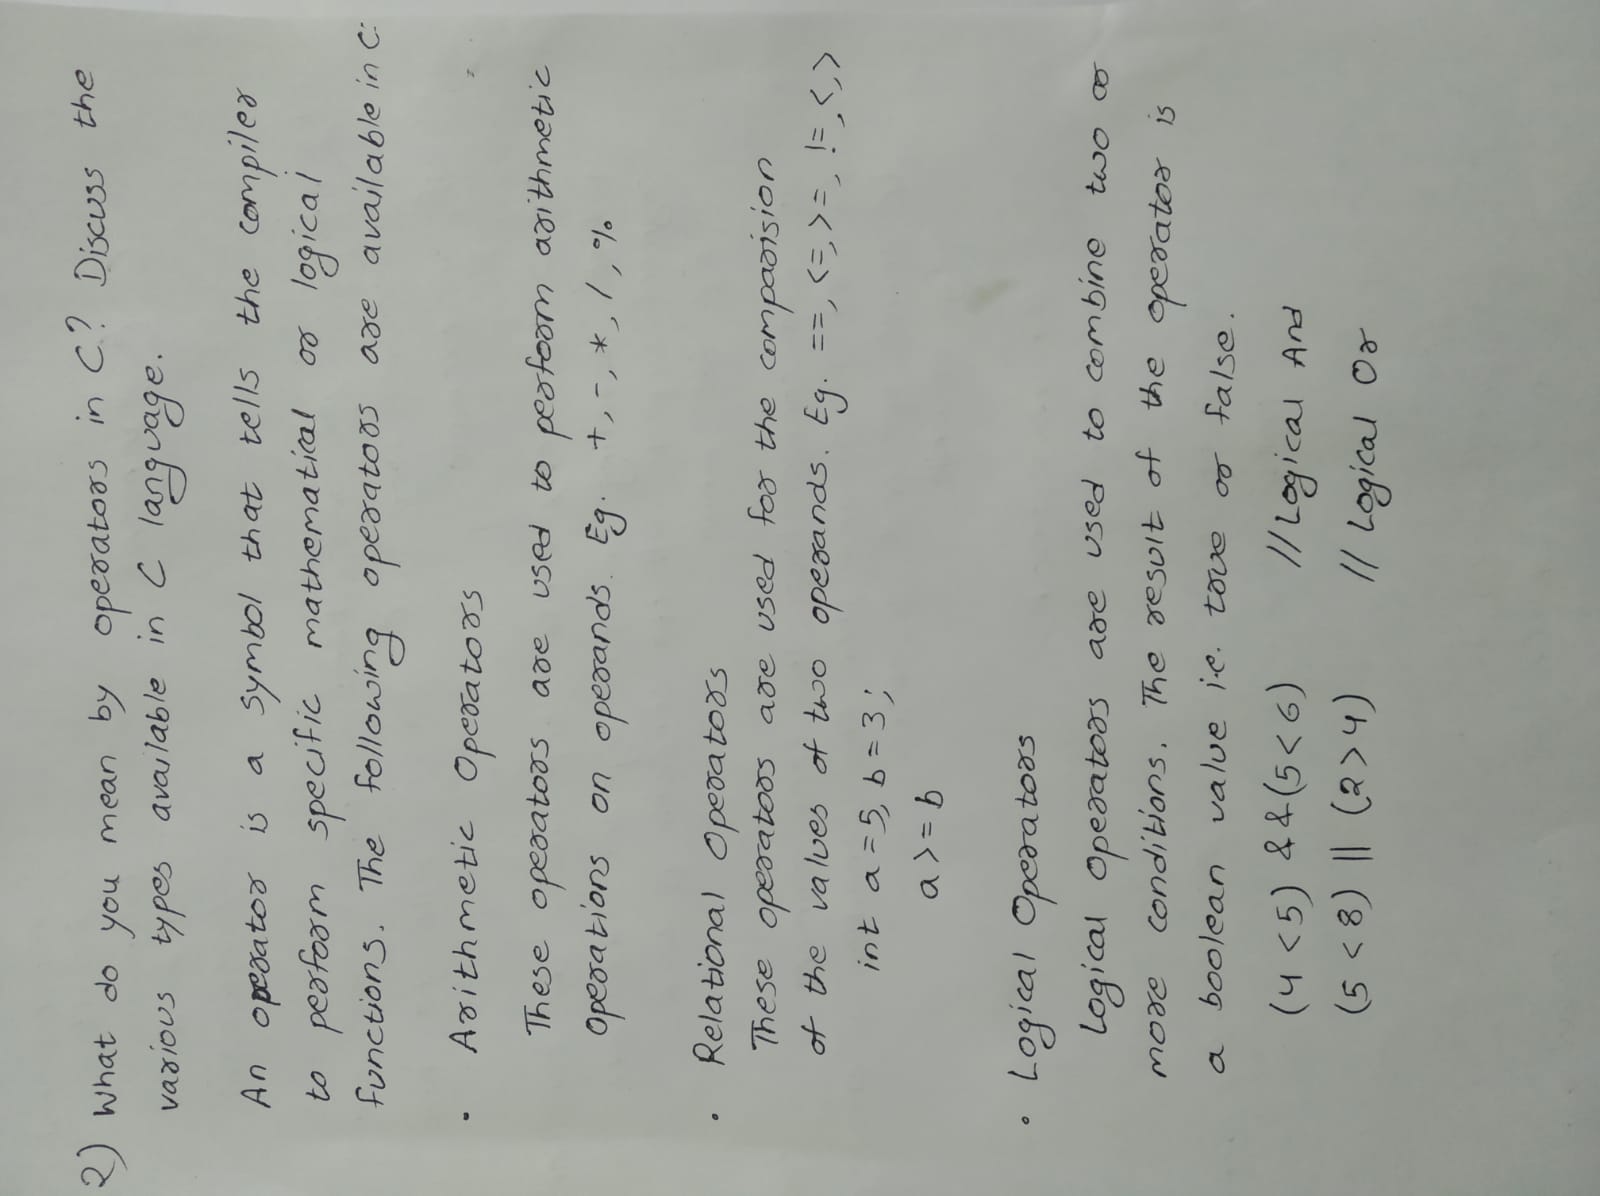 2) What do you mean by operators in C? Discuss the
various types available in C language.
An operator is a symbol that tells the compiler
to perform specific mathematical or logical
functions. The following operators are available in C:
• Arithmetic Operators
These operators are used to perform arithmetic
Operations on operands. Eg. +, -, *, /, %
• Relational Operators
These operators are used for the comparision
of the values of two operands. Eg. ==, <=, >=, !=, <, >
int a = 5, b = 3;
a >= b
• Logical Operators
Logical Operators are used to combine two or
more conditions. The result of the operator is
a boolean value i.e. true or false.
(4 < 5) && (5 < 6) // Logical And
(5 < 8) || (2 > 4) // Logical Or